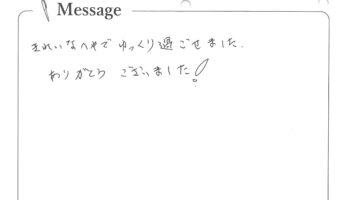 Message
きれいなへやでゆっくり過ごせました.
ありがとうございました!